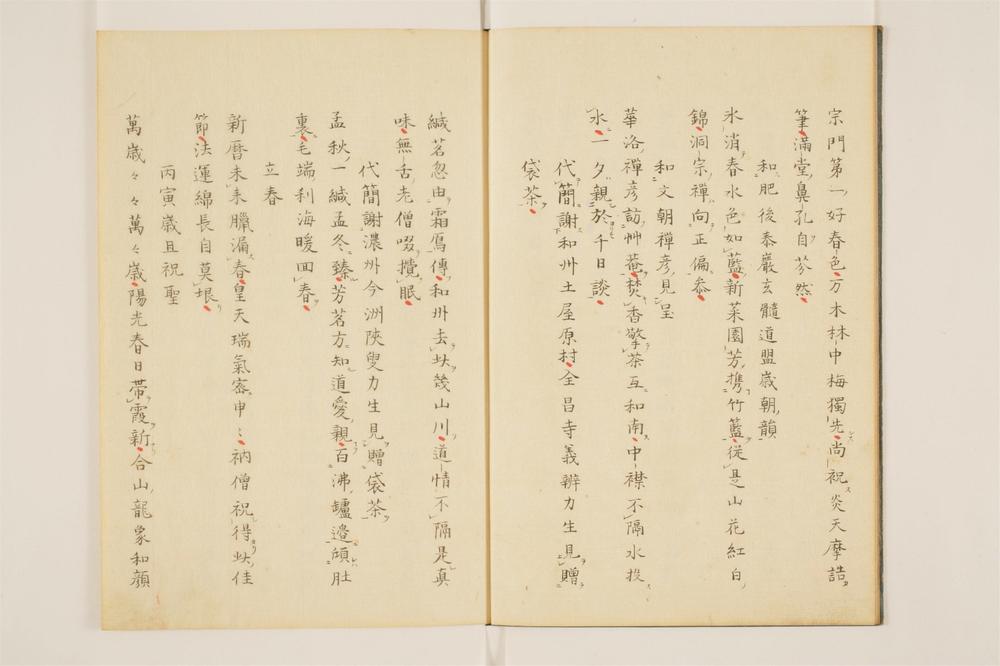 宗門第一好春色万木林中梅獨先尚祝炎天摩詰
筆滿堂鼻孔自芬然
和肥後泰巖玄髓道盟歳朝韻
氷消春水色如藍新菜園芳携竹籃從是山花紅白
錦洞宗禪向正偏参
和文朝禪彦見呈
華洛禪彦訪艸菴焚香擎茶互和南中襟不隔水投
水一夕親於千日談
代簡謝和州土屋原村全昌寺義辨力生見贈
袋茶
緘茗忽由霜鴈傳和州去此幾山川道情不隔是真
味無舌老僧啜攪眠
代簡謝濃州今洲陝叟力生見贈袋茶
孟秋一緘孟冬臻芳茗方知道愛親百沸罏邉頎肚
裏毛端利海暖回春
立春
新暦未来臘漏春皇天瑞氣密申々衲僧祝得此佳
節法運綿長自莫垠
丙寅歳旦祝聖
萬歳々々萬々歳陽光春日帶霞新合山龍象和顔